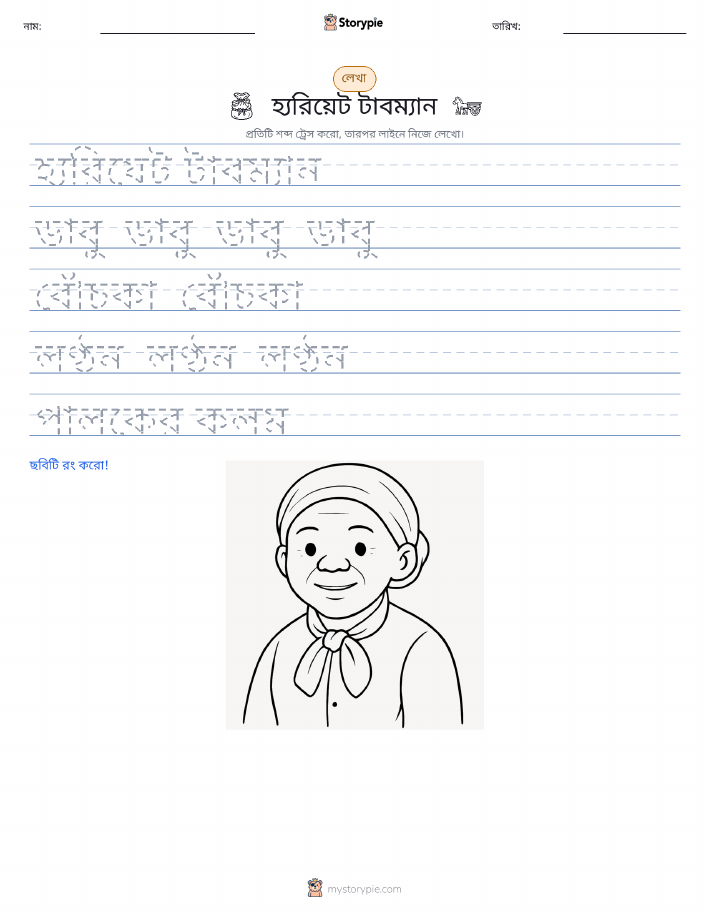 নাম:
Storypie
তারিখ:
লেখা
হ্যারিয়েট টাবম্যান
প্রতিটি শব্দ ট্রেস করো, তারপর লাইনে নিজে লেখো।
হ্যারিয়েট টাবম্যান
তাবু তাবু তাবু তাবু
বোঁচকা বোঁচকা
লণ্ঠন লণ্ঠন লণ্ঠন
পালকের কলম
ছবিটি রং করো!
mystorypie.com